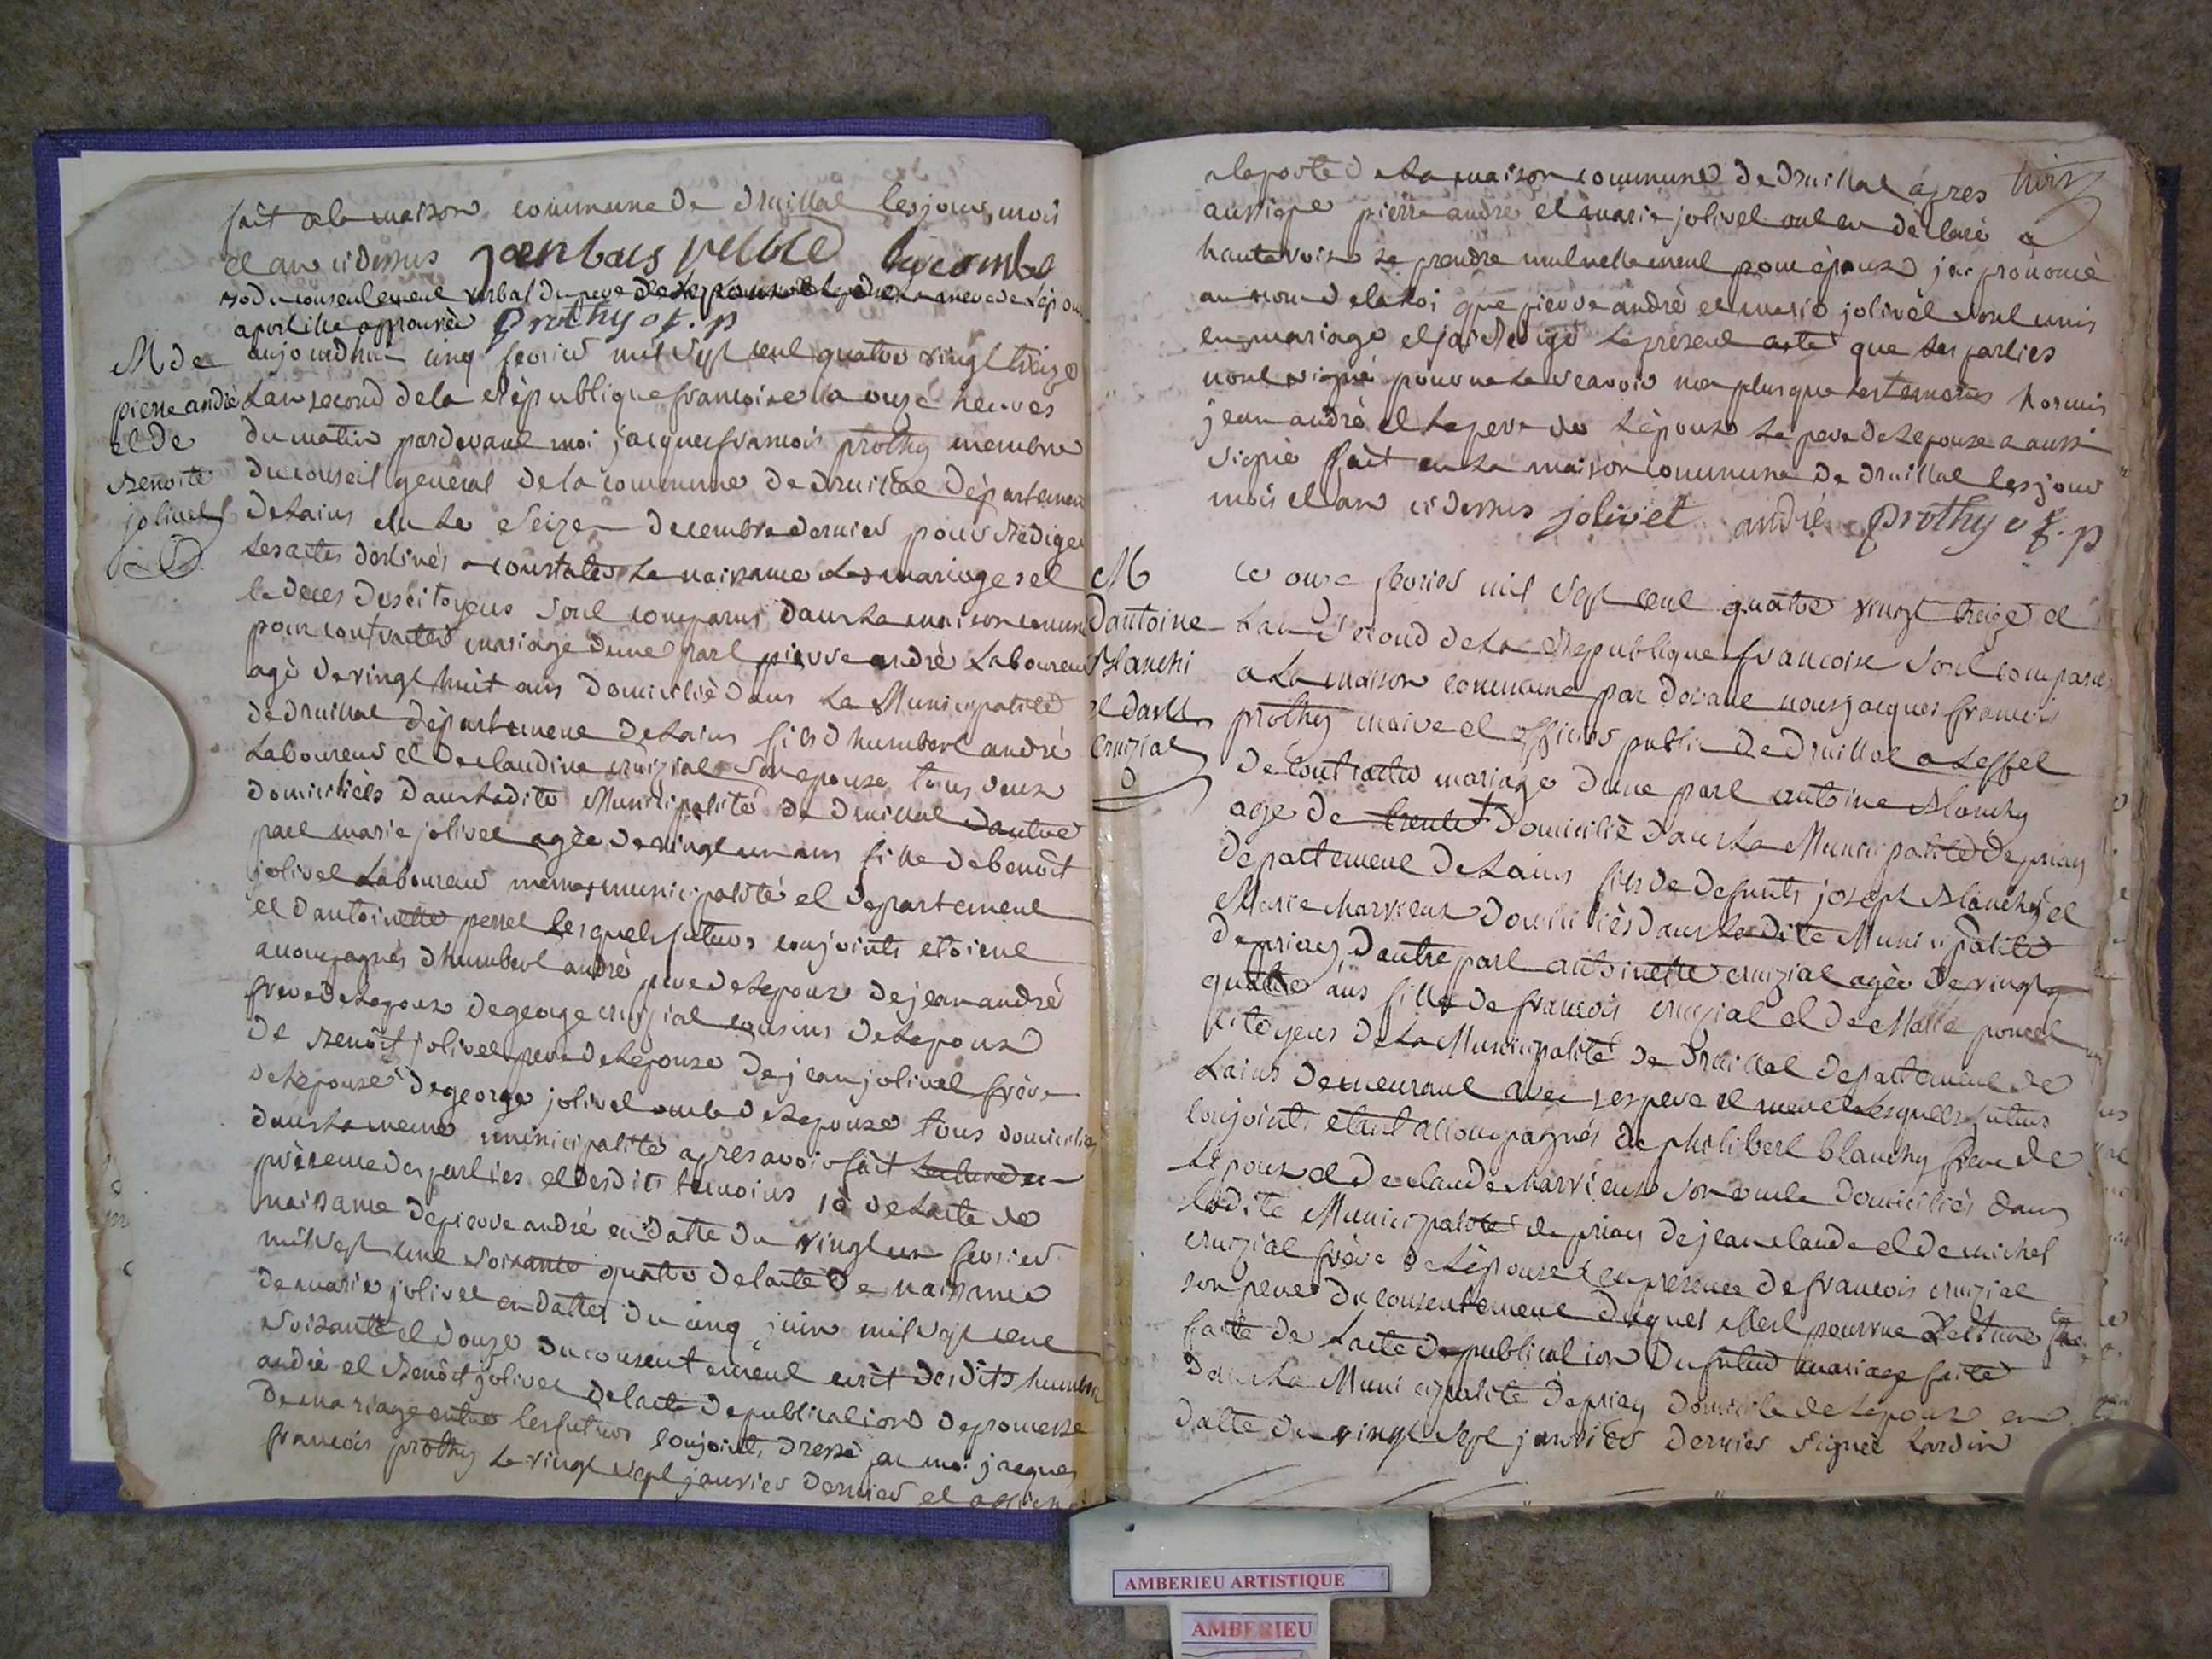 fait a la maison commune de druillat les jours, mois
et an ci dessus
du consentement verbal du pere de
apostille approuvée prothy of. p
M de
pierre andré
et de
benoite
jolivet
aujourdhui cinq fevrier mil sept cent quatre vingt treize
Lan second dela republique francoise a onze heures
du matin pardevant moi jacques francois prothy membre
du conseil général de la commune de druillat département
de Lains elu Le seize decembre dernier pour rediger
les actes destinés a constater La naissance Les mariages et
le deces des citoyens sont comparus dans La maison commune
pour contracter mariage dune part pierre andré Laboureur
agé de vingt huit ans domicilié dans La Municipalité
de druillat département de Lains fils d humbert andré
Laboureur et de claudine cruzial son epouse tous deux
domiciliés dans Ladite Municipalité de druillat dautre
part marie jolivet agée de vingt un ans fille de benoit
jolivet Laboureur meme municipalité et departement
et dantoinette perret lesquels futurs conjoints etoient
accompagnés dhumbert andré pere de Lepoux de jean andré
frere de Lepoux de george cruzial cousins de Lepoux
de benoit jolivet pere de Lepouse de jean jolivet frere
de Lepouse de george jolivet oncle de Lepouse tous domiciliés
dans La meme municipalité apres avoir fait Lecture en
présence des parties et desdits temoins 1o de Lacte de
naissance de pierre andré en datte du vingt un fevrier
mil sept cent soixante quatre de lacte de naissance
de marie jolivet en datte du cinq juin mil sept cent
soixante et douze du consentement ecrit desdits humbert
andré et benoit jolivet de lacte de publication de promesse
de mariage entre les futurs conjoints dressé par moi jacques
francois prothy Le vingt sept janvier dernier et affiché
a la porte de La maison commune de druillat apres
aussi que pierre andré et marie jolivet ont eu déclaré a
haute voix se prendre mutuellement pour époux jai prononcé
au nom de la loi que pierre andré et marie jolivet sont unis
en mariage et jai redigé Le présent acte que Les parties
nont signé pour ne Le scavoir non plus que Les temoins hormis
jean andré et Le pere de Lépoux Le pere de Lepouse a aussi
signé fait en La maison commune de druillat les jour
mois et an ci dessus jolivet andré prothy of. p
M
Dantoine
Blanchi
et dant.
Cruzial
Ce onze fevrier mil sept cent quatre vingt treize et
Lan second de La Republique francoise sont comparus
a La maison commune par devant nous jacques francois
prothy maire et officier public de druillat a Leffet
de contracter mariage dune part antoine Blanchy
age de trente domicilié dans La Municipalité de priay
département de Lains fils de defunts joseph Blanchy et
Marie Marvieux domiciliés dans Ladite Municipalité
de priay dautre part antoinette cruzial agée de vingt
quatre ans fille de francois cruzial et de Marie poncet
citoyens de La Municipalité de druillat departement de
Lains demeurant avec ses pere et mere Lesquels futurs
conjoints etant accompagnés de philibert blanchy frere de
Lepoux et de claude Marvieux son oncle domiciliés dans
Ladite Municipalité de priay de jean claude et de michel
cruzial frère de Lépouse en presence de francois cruzial
son pere du consentement duquel elle est pourvue Lecture
faite de Lacte de publication du futur mariage faite
dans La Municipalité de priay domicile de Lepoux en
datte du vingt sept janvier dernier signée Lardin
AMBERIEU ARTISTIQUE
AMBERIEU